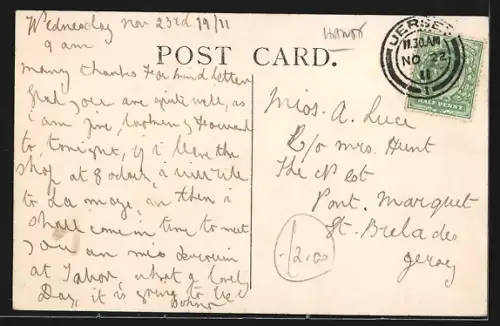 Wednesday Nov 23rd 19/11
9 am
POST CARD.
JERSEY
11.30AM
NO 22
11
1
HALF PENNY
many thanks for kind letter
glad you are quite well, as
i am fine, looking forward
to, tonight, if i leave the
shop at 8 oclock, i will ride
to La moye, an then i
shall come in time to meet
you an miss
at Tabor, what a lovely
Day, it is going to be
Miss. A. Luce
C/o mrs. Hunt
The
Pont. Marquet
St. Brelades
Jersey
2.00